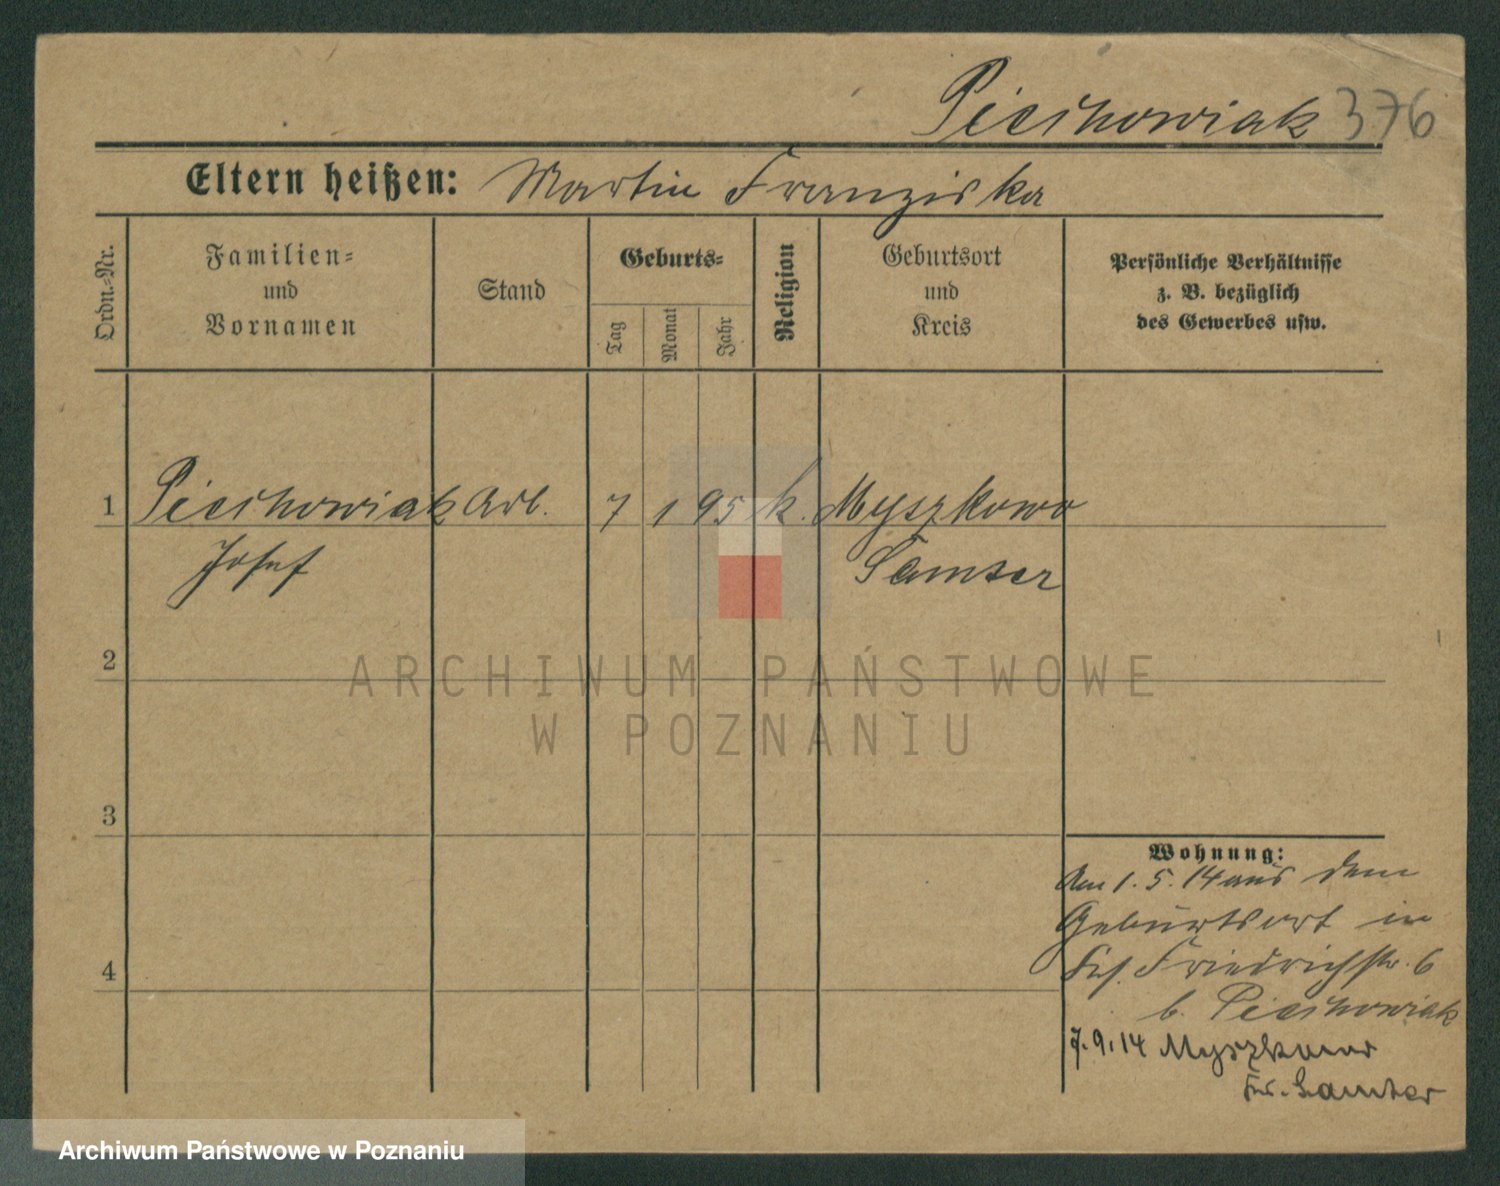 Piechowiak 376
Eltern heißen: Martin Franziska
Ordn.-Nr.
Familien-
und
Vornamen
Stand
Geburts-
Tag
Monat
Jahr
Religion
Geburtsort
und
Kreis
Persönliche Verhältnisse
z. B. bezüglich
des Gewerbes usw.
1 Piechowiak Arb. 7 1 95 k. Myszkowo
Josef Samter
2
ARCHIWUM PAŃSTWOWE
W POZNANIU
3
Wohnung:
Am 1. 5. 14 aus dem
Geburtsort in
Friedrichstr. 6
4
b. Piechowiak
7.9.14 Myszkowo
Kr. Samter
Archiwum Państwowe w Poznaniu